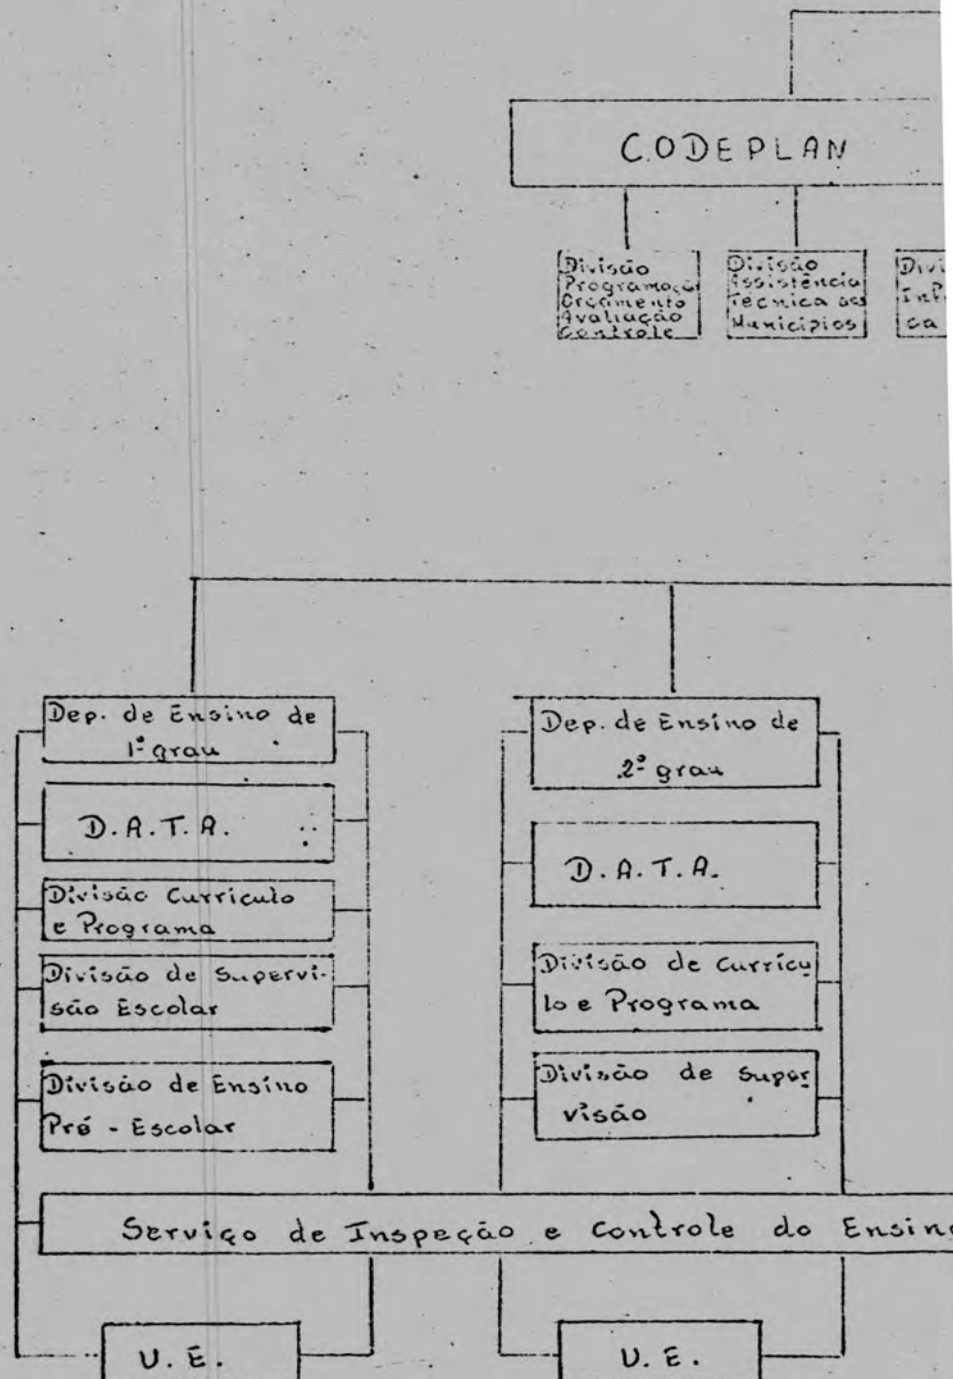 CODEPLAN
Divisão
Programação
Orçamento
Avaliação
Controle
Divisão
Assistência
Técnica aos
Municípios
Divi
Inf
ca
Dep. de Ensino de
1º grau
D.A.T.A.
Divisão Currículo
e Programa
Divisão de Supervi-
são Escolar
Divisão de Ensino
Pré - Escolar
Dep. de Ensino de
2º grau
D.A.T.A.
Divisão de Currícu
lo e Programa
Divisão de Super
visão
Serviço de Inspeção e Controle do Ensino
U.E.
U.E.